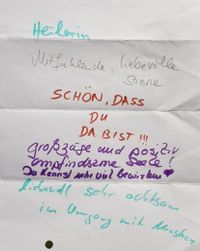 Heilerin
Mitfühlende, liebevolle
Sonne
SCHÖN, DASS
DU
DA BIST !!!
großzüge und positiv
empfindsame Seele!
Du kannst sehr viel bewirken ♥
liebevoll sehr achtsam
im Umgang mit Menschen